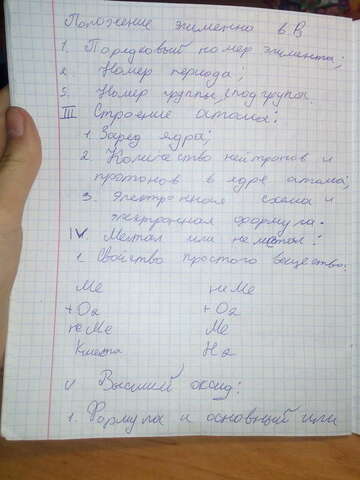 Положение элемента в В
1. Порядковый номер элемента;
2. Номер периода;
3. Номер группы, подгрупа.
III Строение атома:
1. Заряд ядра;
2. Количество нейтронов и
протонов в ядре атома;
3. Электронная схема и
электронная формула.
IV. Металл или неметалл:
1. Свойство простого вещества:
Me неMe
+O2 +O2
неMe Me
Кислота H2
V Высший оксид:
1. Формула и основный или